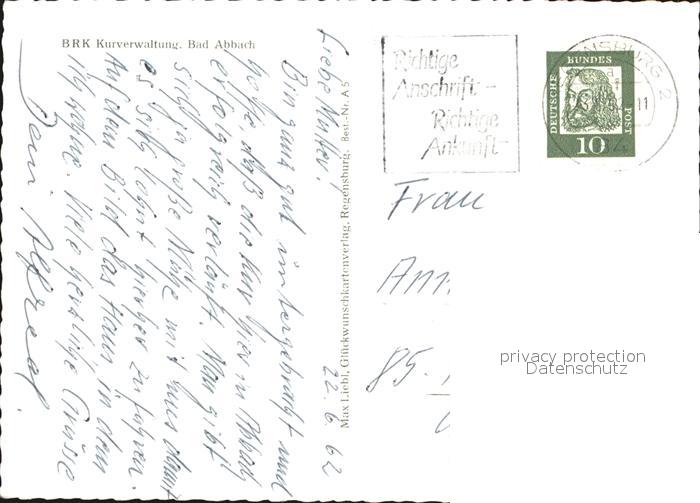 BRK Kurverwaltung. Bad Abbach
Liebe Mutter!
Bin ganz gut untergebracht und
hoffe, daß die Kur hier in Abbach
erfolgreich verläuft. Man gibt
sich ja große Mühe mit uns damit
es sich lohnt hierher zu fahren.
Auf dem Bild das Haus in dem
ich wohne. Viele herzliche Grüsse
Dein Alfred
22.6.62
Max Liebl, Glückwunschkartenverlag, Regensburg. Best.-Nr. A 5
Richtige
Anschrift -
Richtige
Ankunft
DEUTSCHE
BUNDES
POST
10
Frau
85.
privacy protection
Datenschutz